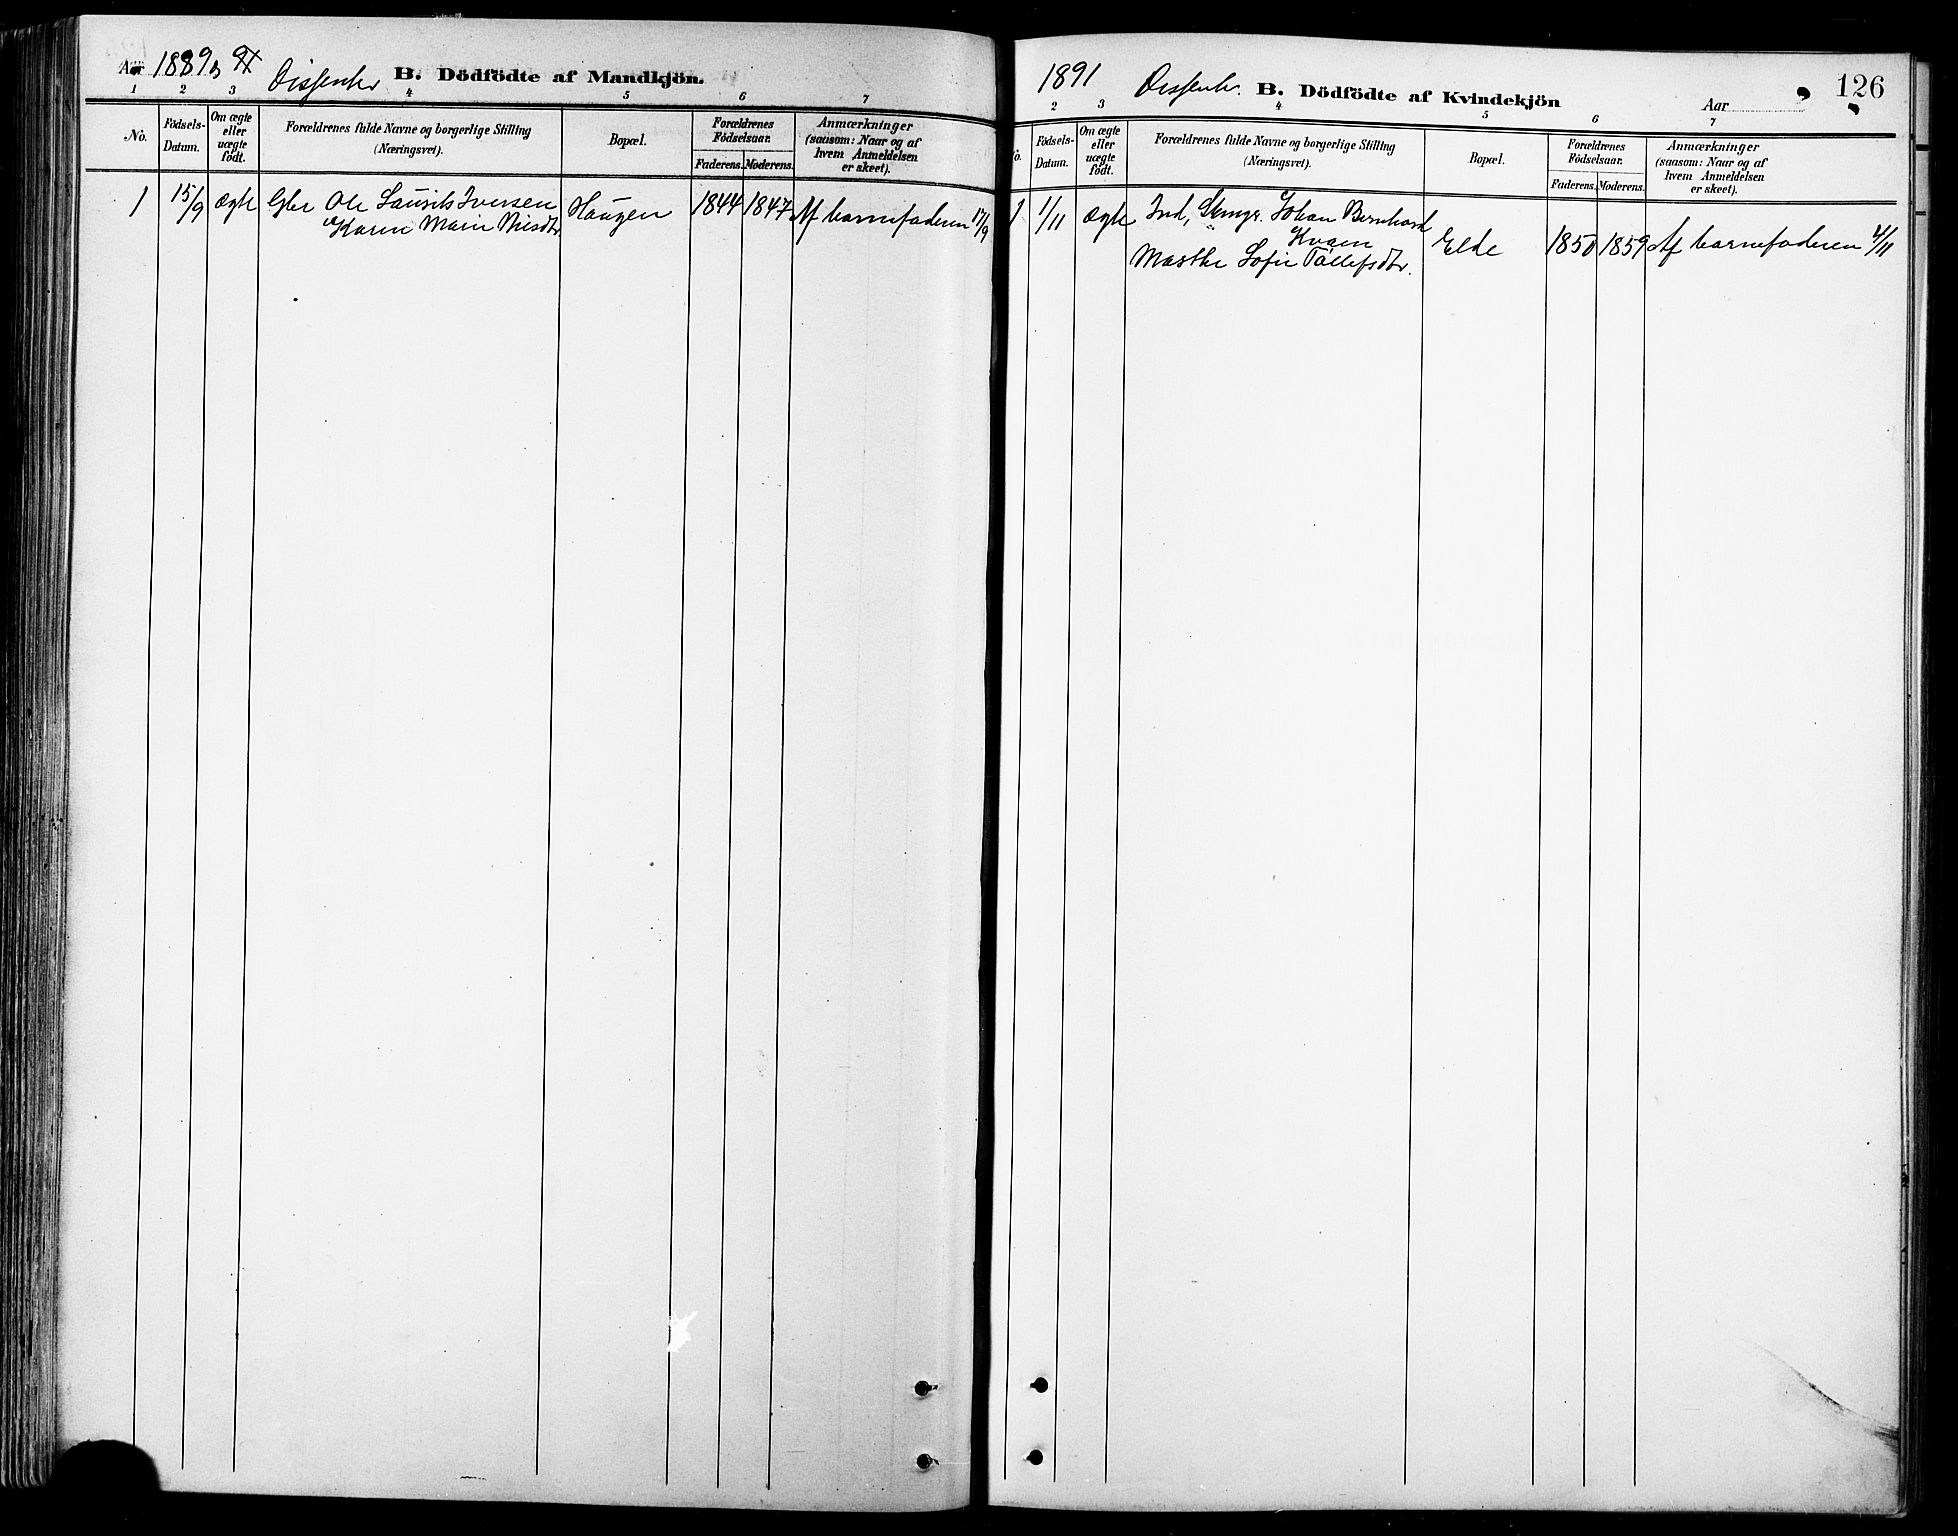 Aar 1889
Dissenter
B. Dödfödte af Mandkjön.
1 2 3 4 5 6 7
No.
Födsels-
Datum.
Om ægte
eller
uægte
födt.
Forældrenes fulde Navne og borgerlige Stilling
(Næringsvei).
Bopæl.
Forældrenes
Födselsaar.
Faderens. Moderens.
Anmærkninger
(saasom: Naar og af
hvem Anmeldelsen
er skeet).
1 15/9 ægte Gbr Ole Laurits Iversen Haugen 1844 1847 Af barnefaderen 17/9
Karen Marie Nilsdtr
1891
Dissenter.
B. Dödfödte af Kvindekjön
Aar
126
2 3 4 5 6 7
No.
Födsels-
Datum.
Om ægte
eller
uægte
födt.
Forældrenes fulde Navne og borgerlige Stilling
(Næringsvei).
Bopæl.
Forældrenes
Födselsaar.
Faderens. Moderens.
Anmærkninger
(saasom: Naar og af
hvem Anmeldelsen
er skeet).
1 1/11 ægte Ind, Johan Bernhard
Kvam
Marthe Sofie Tollefsdtr. Elde 1850 1859 Af barnefaderen 4/11